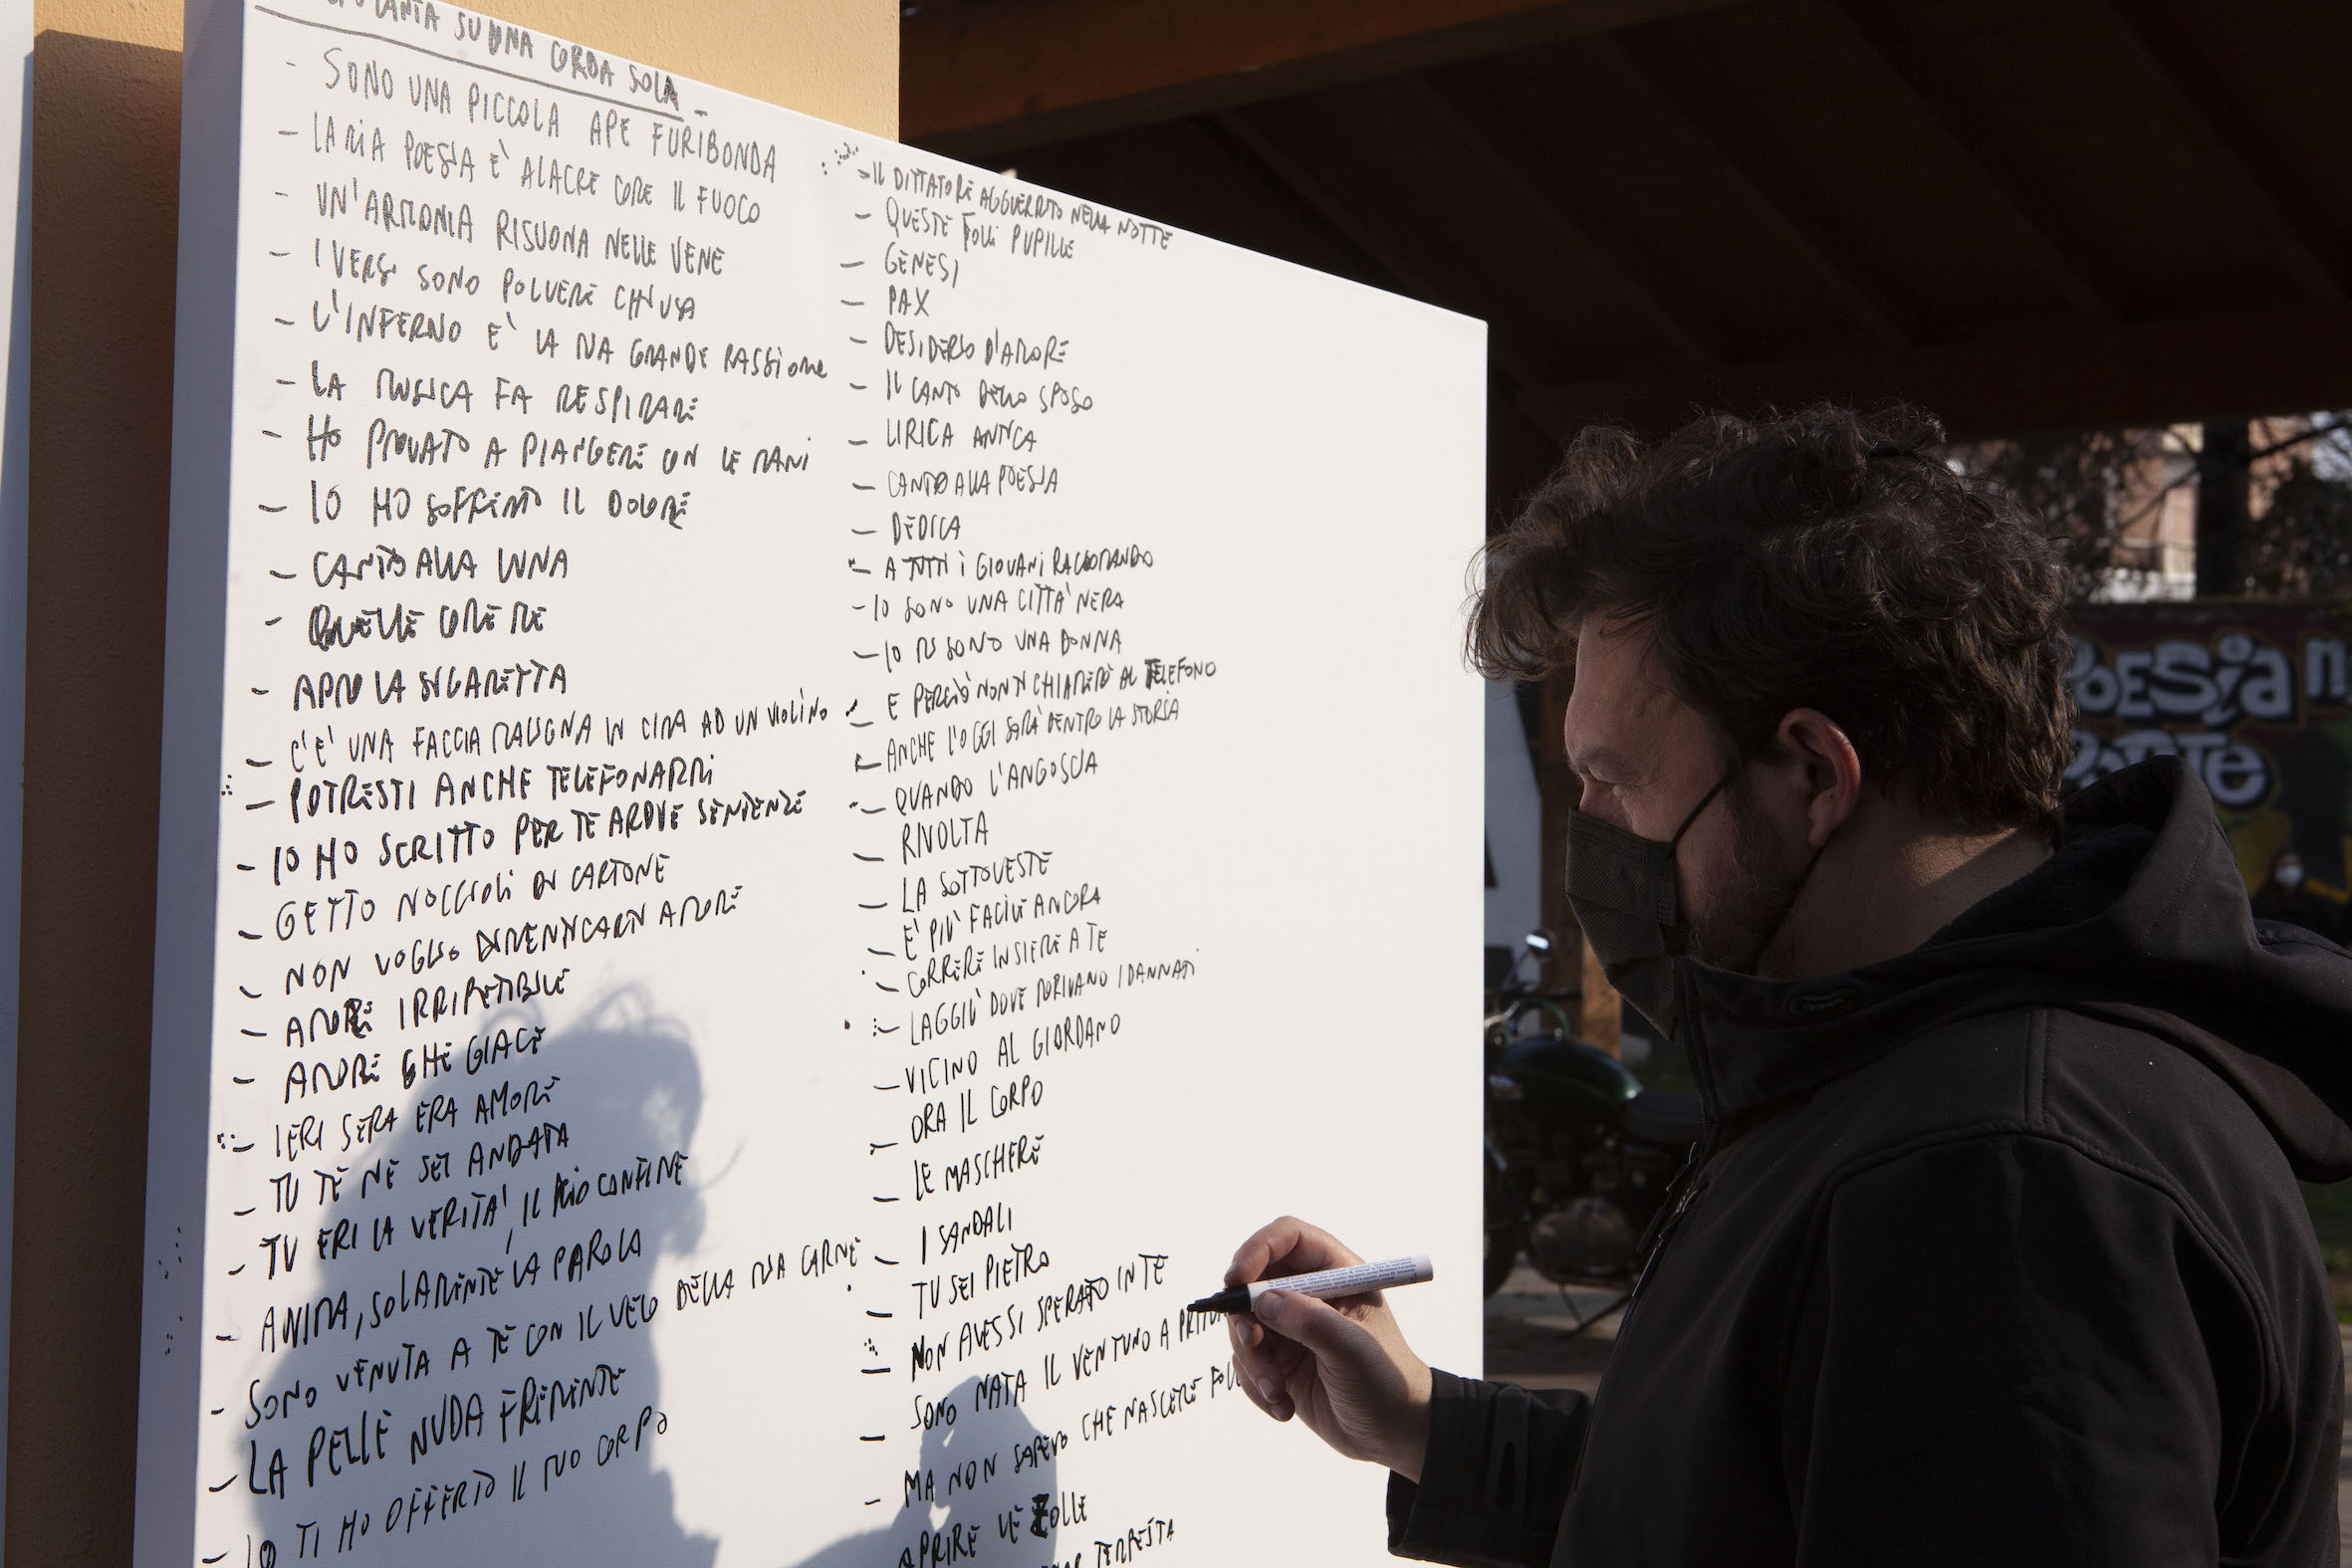 SU UNA CORDA SOLA -
- SONO UNA PICCOLA APE FURIBONDA
- LA MIA POESIA E' ALACRE COME IL FUOCO
- UN'ARMONIA RISUONA NELLE VENE
- I VERSI SONO POLVERE CHIUSA
- L'INFERNO E' LA MIA GRANDE PASSIONE
- LA MUSICA FA RESPIRARE
- HO PROVATO A PIANGERE CON LE MANI
- IO HO SOFFERTO IL DOLORE
- CANTO ALLA LUNA
- QUELLE COME ME
- APRO LA SIGARETTA
- C'E' UNA FACCIA MALIGNA IN CIMA AD UN VIOLINO
- POTRESTI ANCHE TELEFONARMI
- IO HO SCRITTO PER TE ARDUE SENTENZE
- GETTO NOCCIOLI DI CARTONE
- NON VOGLIO DIMENTICARTI AMORE
- AMORE IRRIPETIBILE
- AMORE CHE GIACE
- IERI SERA ERA AMORE
- TU TE NE SEI ANDATA
- TU ERI LA VERITA', IL MIO CONFINE
- ANIMA, SOLAMENTE LA PAROLA
- SONO VENUTA A TE CON IL VELO DELLA MIA CARNE
- LA PELLE NUDA FREMENTE
- IO TI HO OFFERTO IL TUO CORPO
- IL DITTATORE AGGUERRITO NELLA NOTTE
- QUESTE FOLLI PUPILLE
- GENESI
- PAX
- DESIDERIO D'AMORE
- IL CANTO DELLO SPOSO
- LIRICA ANTICA
- CANTO ALLA POESIA
- DEDICA
- A TUTTI I GIOVANI RACCOMANDO
- IO SONO UNA CITTA' NERA
- IO MI SONO UNA DONNA
- E PERCIO' NON TI CHIAMERO' AL TELEFONO
- ANCHE L'OGGI SARA' DENTRO LA STORIA
- QUANDO L'ANGOSCIA
- RIVOLTA
- LA SOTTOVESTE
- E' PIU' FACILE ANCORA
- CORRERE INSIEME A TE
- LAGGIU' DOVE MORIVANO I DANNATI
- VICINO AL GIORDANO
- ORA IL CORPO
- LE MASCHERE
- I SANDALI
- TU SEI PIETRO
- NON AVESSI SPERATO IN TE
- SONO NATA IL VENTUNO A
- MA NON SAPEVO CHE NASCERE
- APRIRE LE ZOLLE
TEMPESTA
POESIA